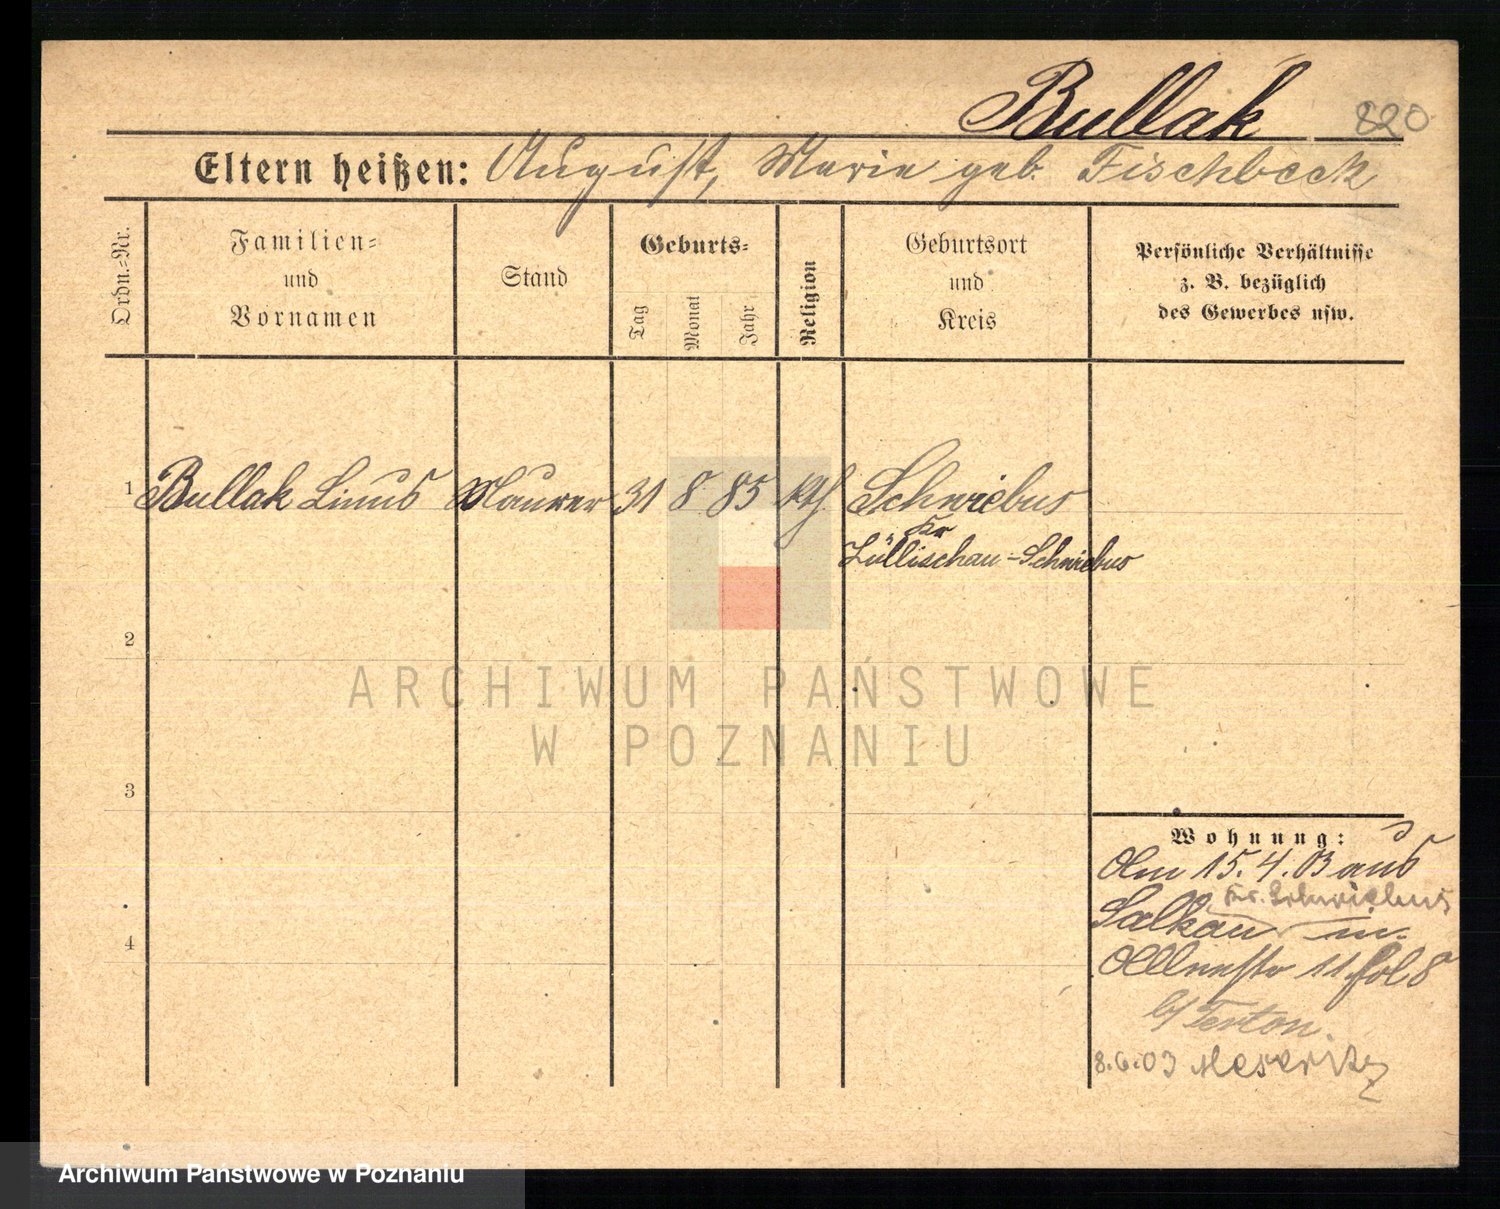 Bullak 820
Eltern heißen: August, Marie geb. Fischbeck
Ordn.-Nr.
Familien-
und
Vornamen
Stand
Geburts-
Tag
Monat
Jahr
Religion
Geburtsort
und
Kreis
Persönliche Verhältnisse
z. B. bezüglich
des Gewerbes usw.
1 Bullak Linus Maurer 31 8 85 kth. Schwiebus
Kr
Züllischau-Schwiebus
2
3
4
Wohnung:
Am 15.4.03 aus
Kr. Schwiebus
Salkau in
11 8
b/
8.6.03 Meseritz
ARCHIWUM PAŃSTWOWE
W POZNANIU
Archiwum Państwowe w Poznaniu